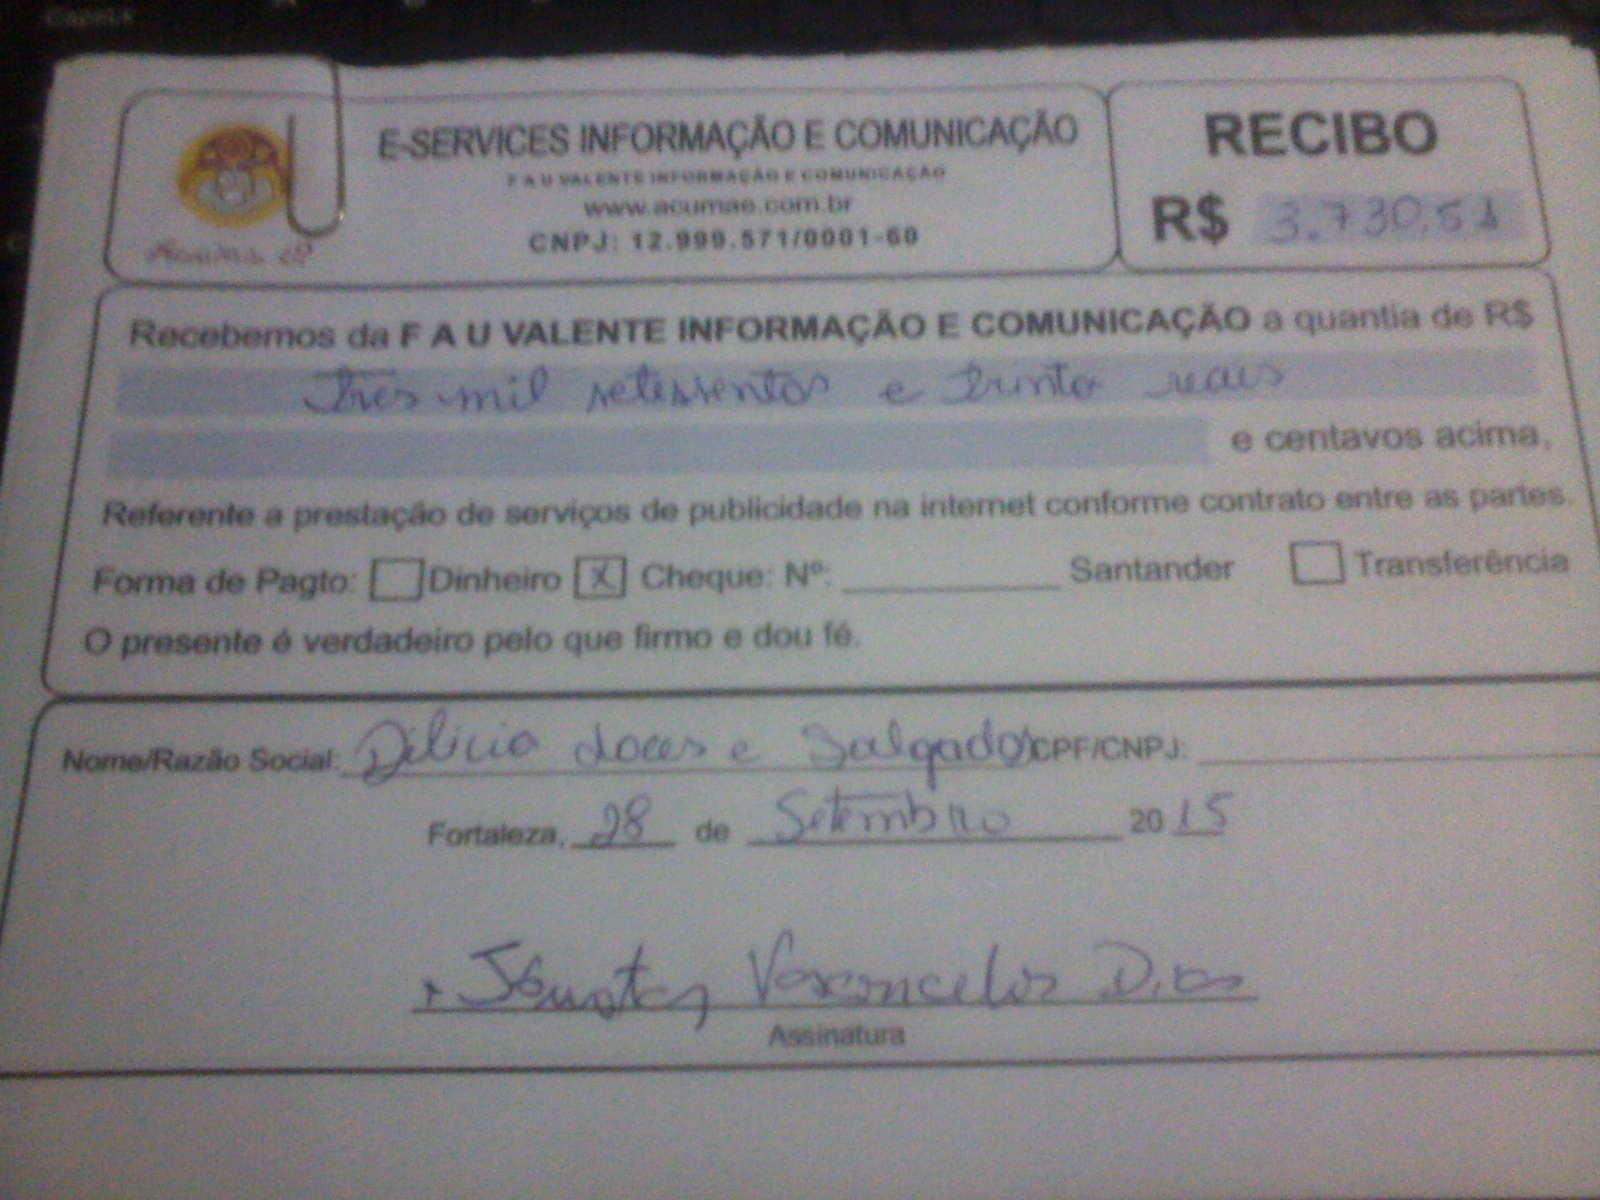 E-SERVICES INFORMAÇÃO E COMUNICAÇÃO
F A U VALENTE INFORMAÇÃO E COMUNICAÇÃO
www.acumae.com.br
CNPJ: 12.999.571/0001-60
RECIBO
R$ 3.730,51
Recebemos da F A U VALENTE INFORMAÇÃO E COMUNICAÇÃO a quantia de R$
Tres mil setessentos e trinta reais
e centavos acima,
Referente a prestação de serviços de publicidade na internet conforme contrato entre as partes.
Forma de Pagto: Dinheiro X Cheque: Nº: Santander Transferência
O presente é verdadeiro pelo que firmo e dou fé.
Nome/Razão Social: Delicia doces e Salgados CPF/CNPJ:
Fortaleza, 28 de Setembro 2015
Vasconcelos Dias
Assinatura